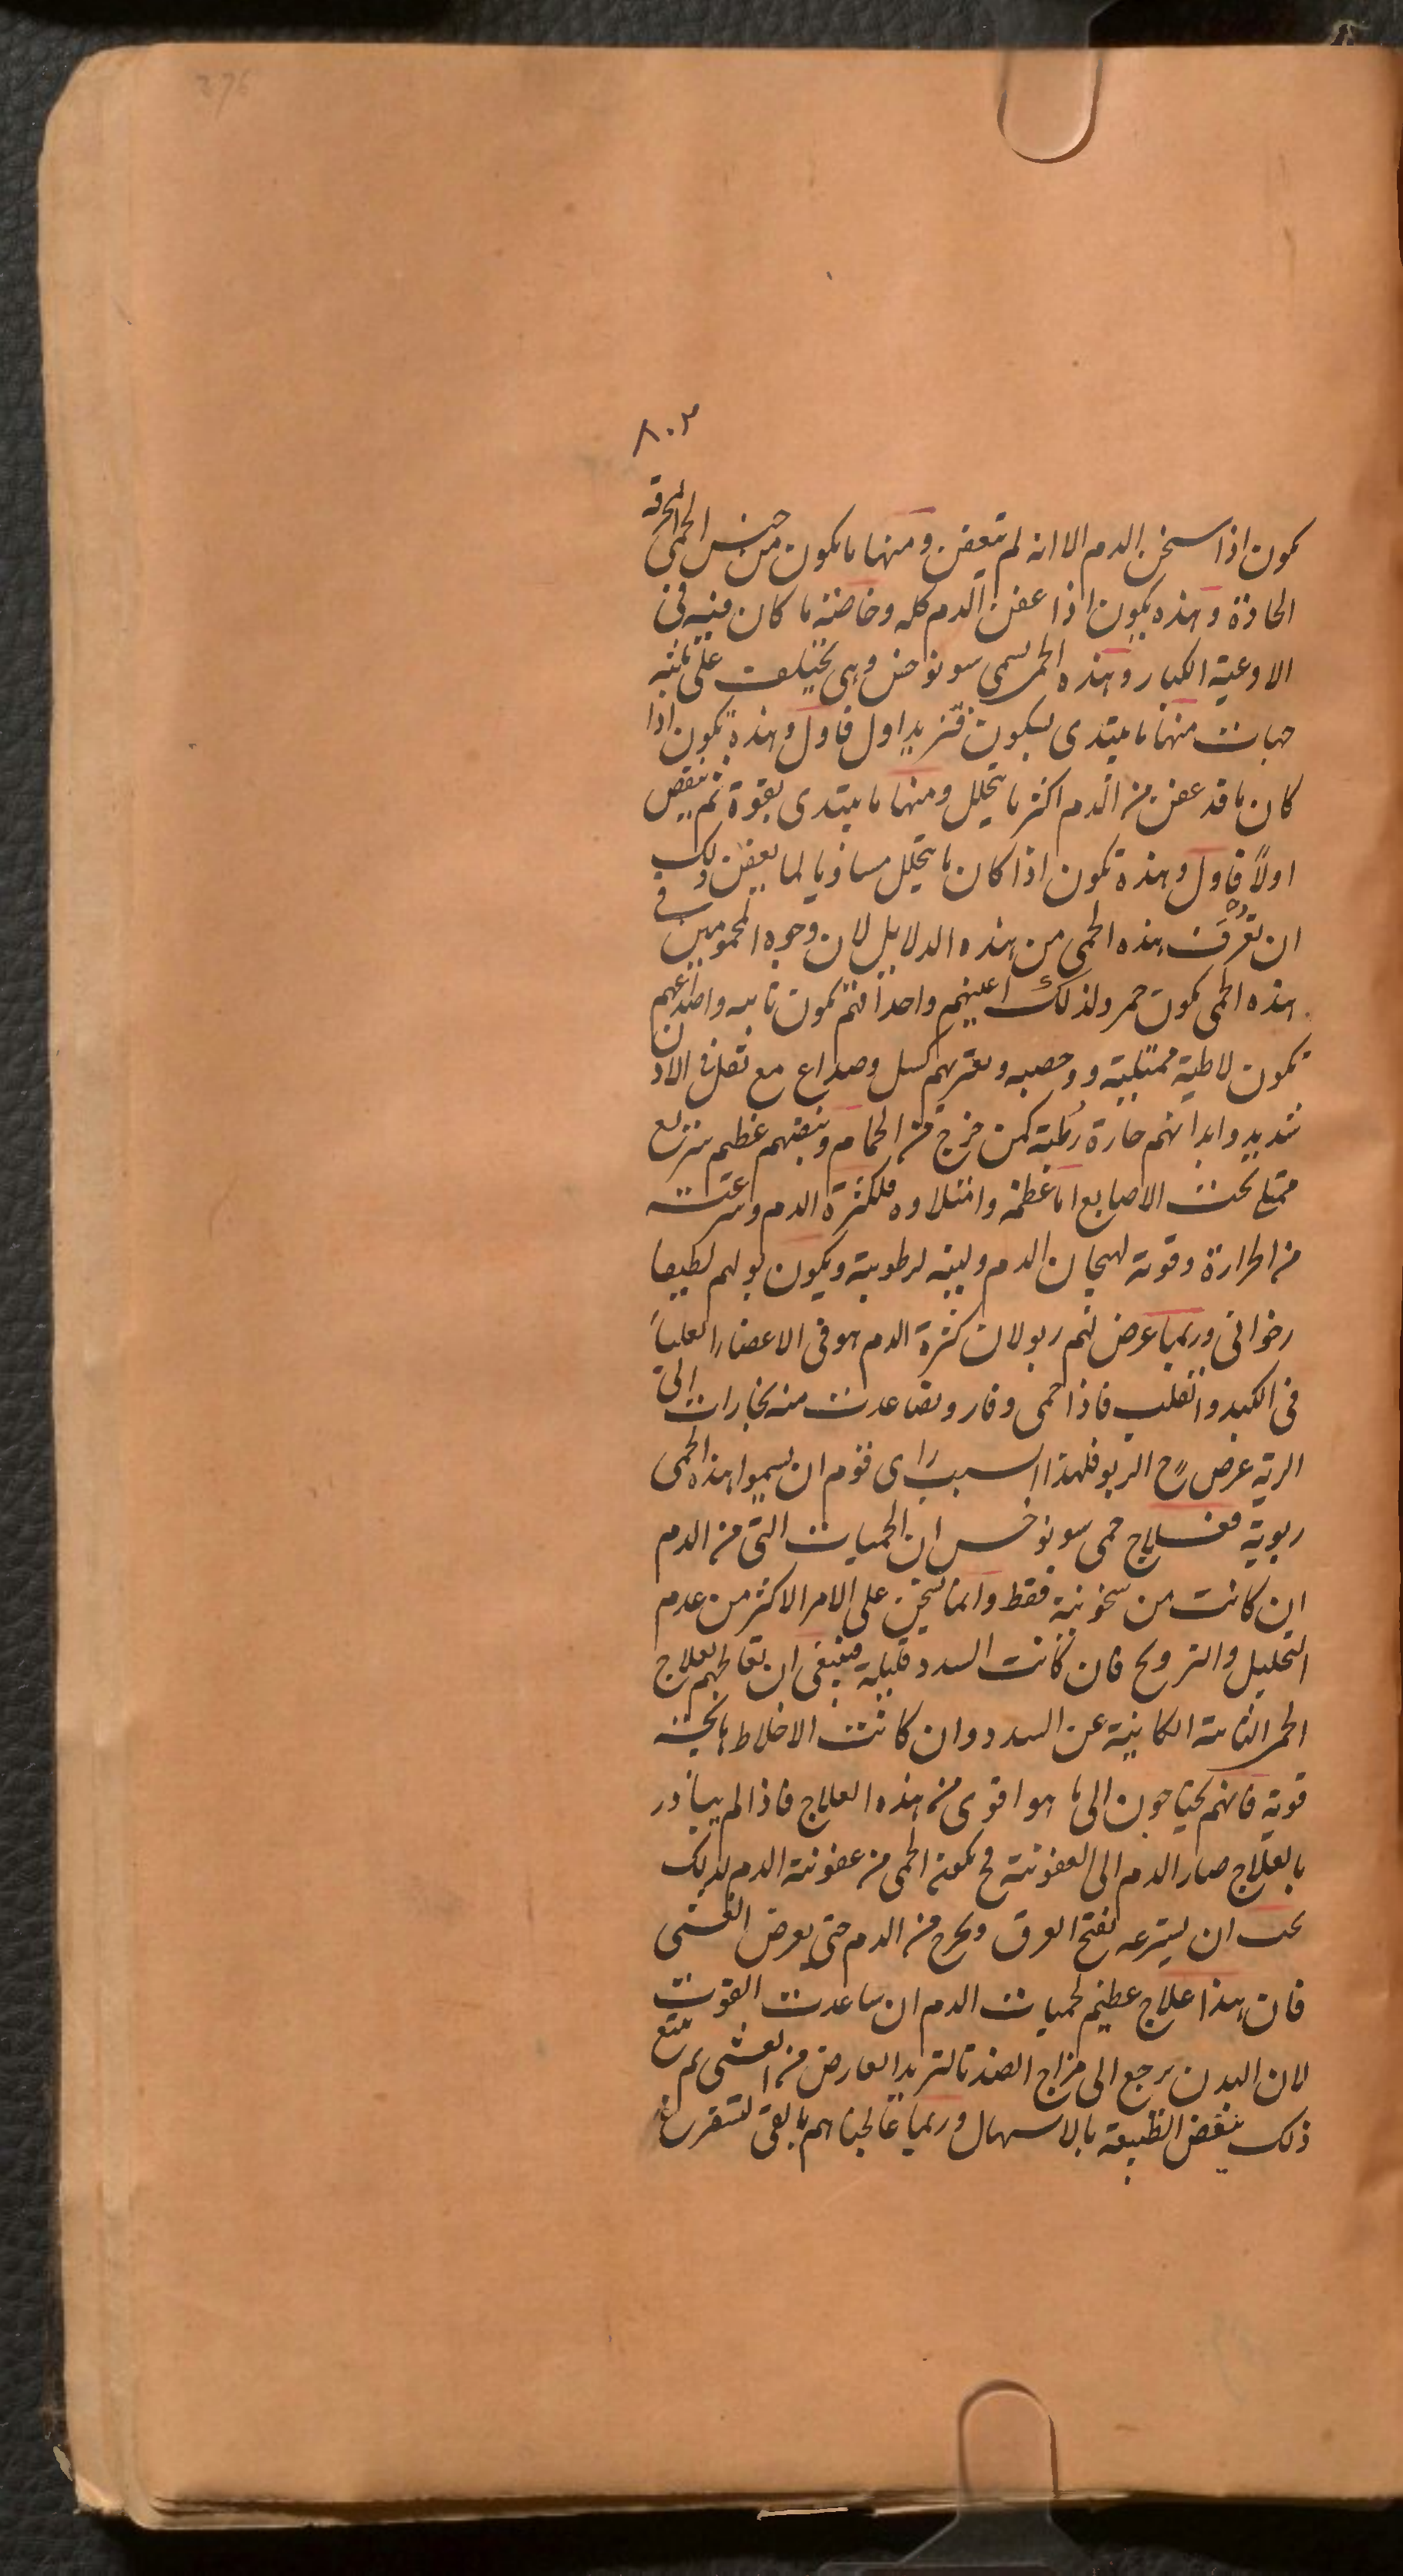 276
٨٠٣
كون اذا سخن الدم الا انه لم يتعفن ومنها ما يكون من جنس الحمى المحرقة
الحادة وهذه يكون اذا عفن الدم كله وخاصته ما كان منه فى
الاوعية الكبار وهذه الحمى تسمى سونوخس وهى تختلف على ثلثه
جهات منها ما يبتدى بسكون فتزيد اول فاول وهذه تكون اذا
كان ما قد عفن من الدم اكثر ما يتحلل ومنها ما يبتدى بقوة ثم ينقص
اولاً فاول وهذه تكون اذا كان ما يتحلل مساويا لما يعفن ولك
ان تعرف هذه الحمى من هذه الدلايل لان وجوه المحمومين فى
هذه الحمى تكون حمر ولذلك اعينهم واحداقهم تكون ناتيه واصداغهم
تكون لاطية ممتليية ويعتريهم كسل وصداع مع ثقل فى الاذن
شديد وابدانهم حارة رطبة كمن خرج من الحمام ونبضهم عظيم سريع
ممتلى تحت الاصابع اما عظمه وامتلاوه فلكثرة الدم وسرعته
من الحرارة وقوته لهيجان الدم ولينه لرطوبته ويكون بولهم لطيفا
وربما عرض لهم ربو لان كثرة الدم هو فى الاعضاء العليا
فى الكبد والقلب فاذا حمى وفار وتصاعدت منه بخارات الى
الرية عرض ح الربو فلهذا السبب راى قوم ان يسموا هذه الحمى
ربوية فعلاج حمى سونوخس ان الحميات التى من الدم
ان كانت من سخونية فقط وانما تسخن على الامر الاكثر من عدم
التحليل والترويح فان كانت السدد قليلة فينبغى ان تعالجهم بعلاج
الحمى الكاينة عن السدد وان كانت الاخلاط
قوية فانهم يحتاجون الى ما هو اقوى من هذه العلاج فاذا لم يبادر
بالعلاج صار الدم الى العفونة وح تكون الحمى من عفونة الدم لذلك
يجب ان يسترعه بفتح العرق ويخرج من الدم حتى يعرض الغشى
فان هذا علاج عظيم لحميات الدم ان ساعدت القوت
لان البدن يرجع الى مزاج الضد بالتبريد العارض من الغشى ثم يتبع
ذلك بنفض الطبيعة بالاسهال وربما عالجناهم بالقى